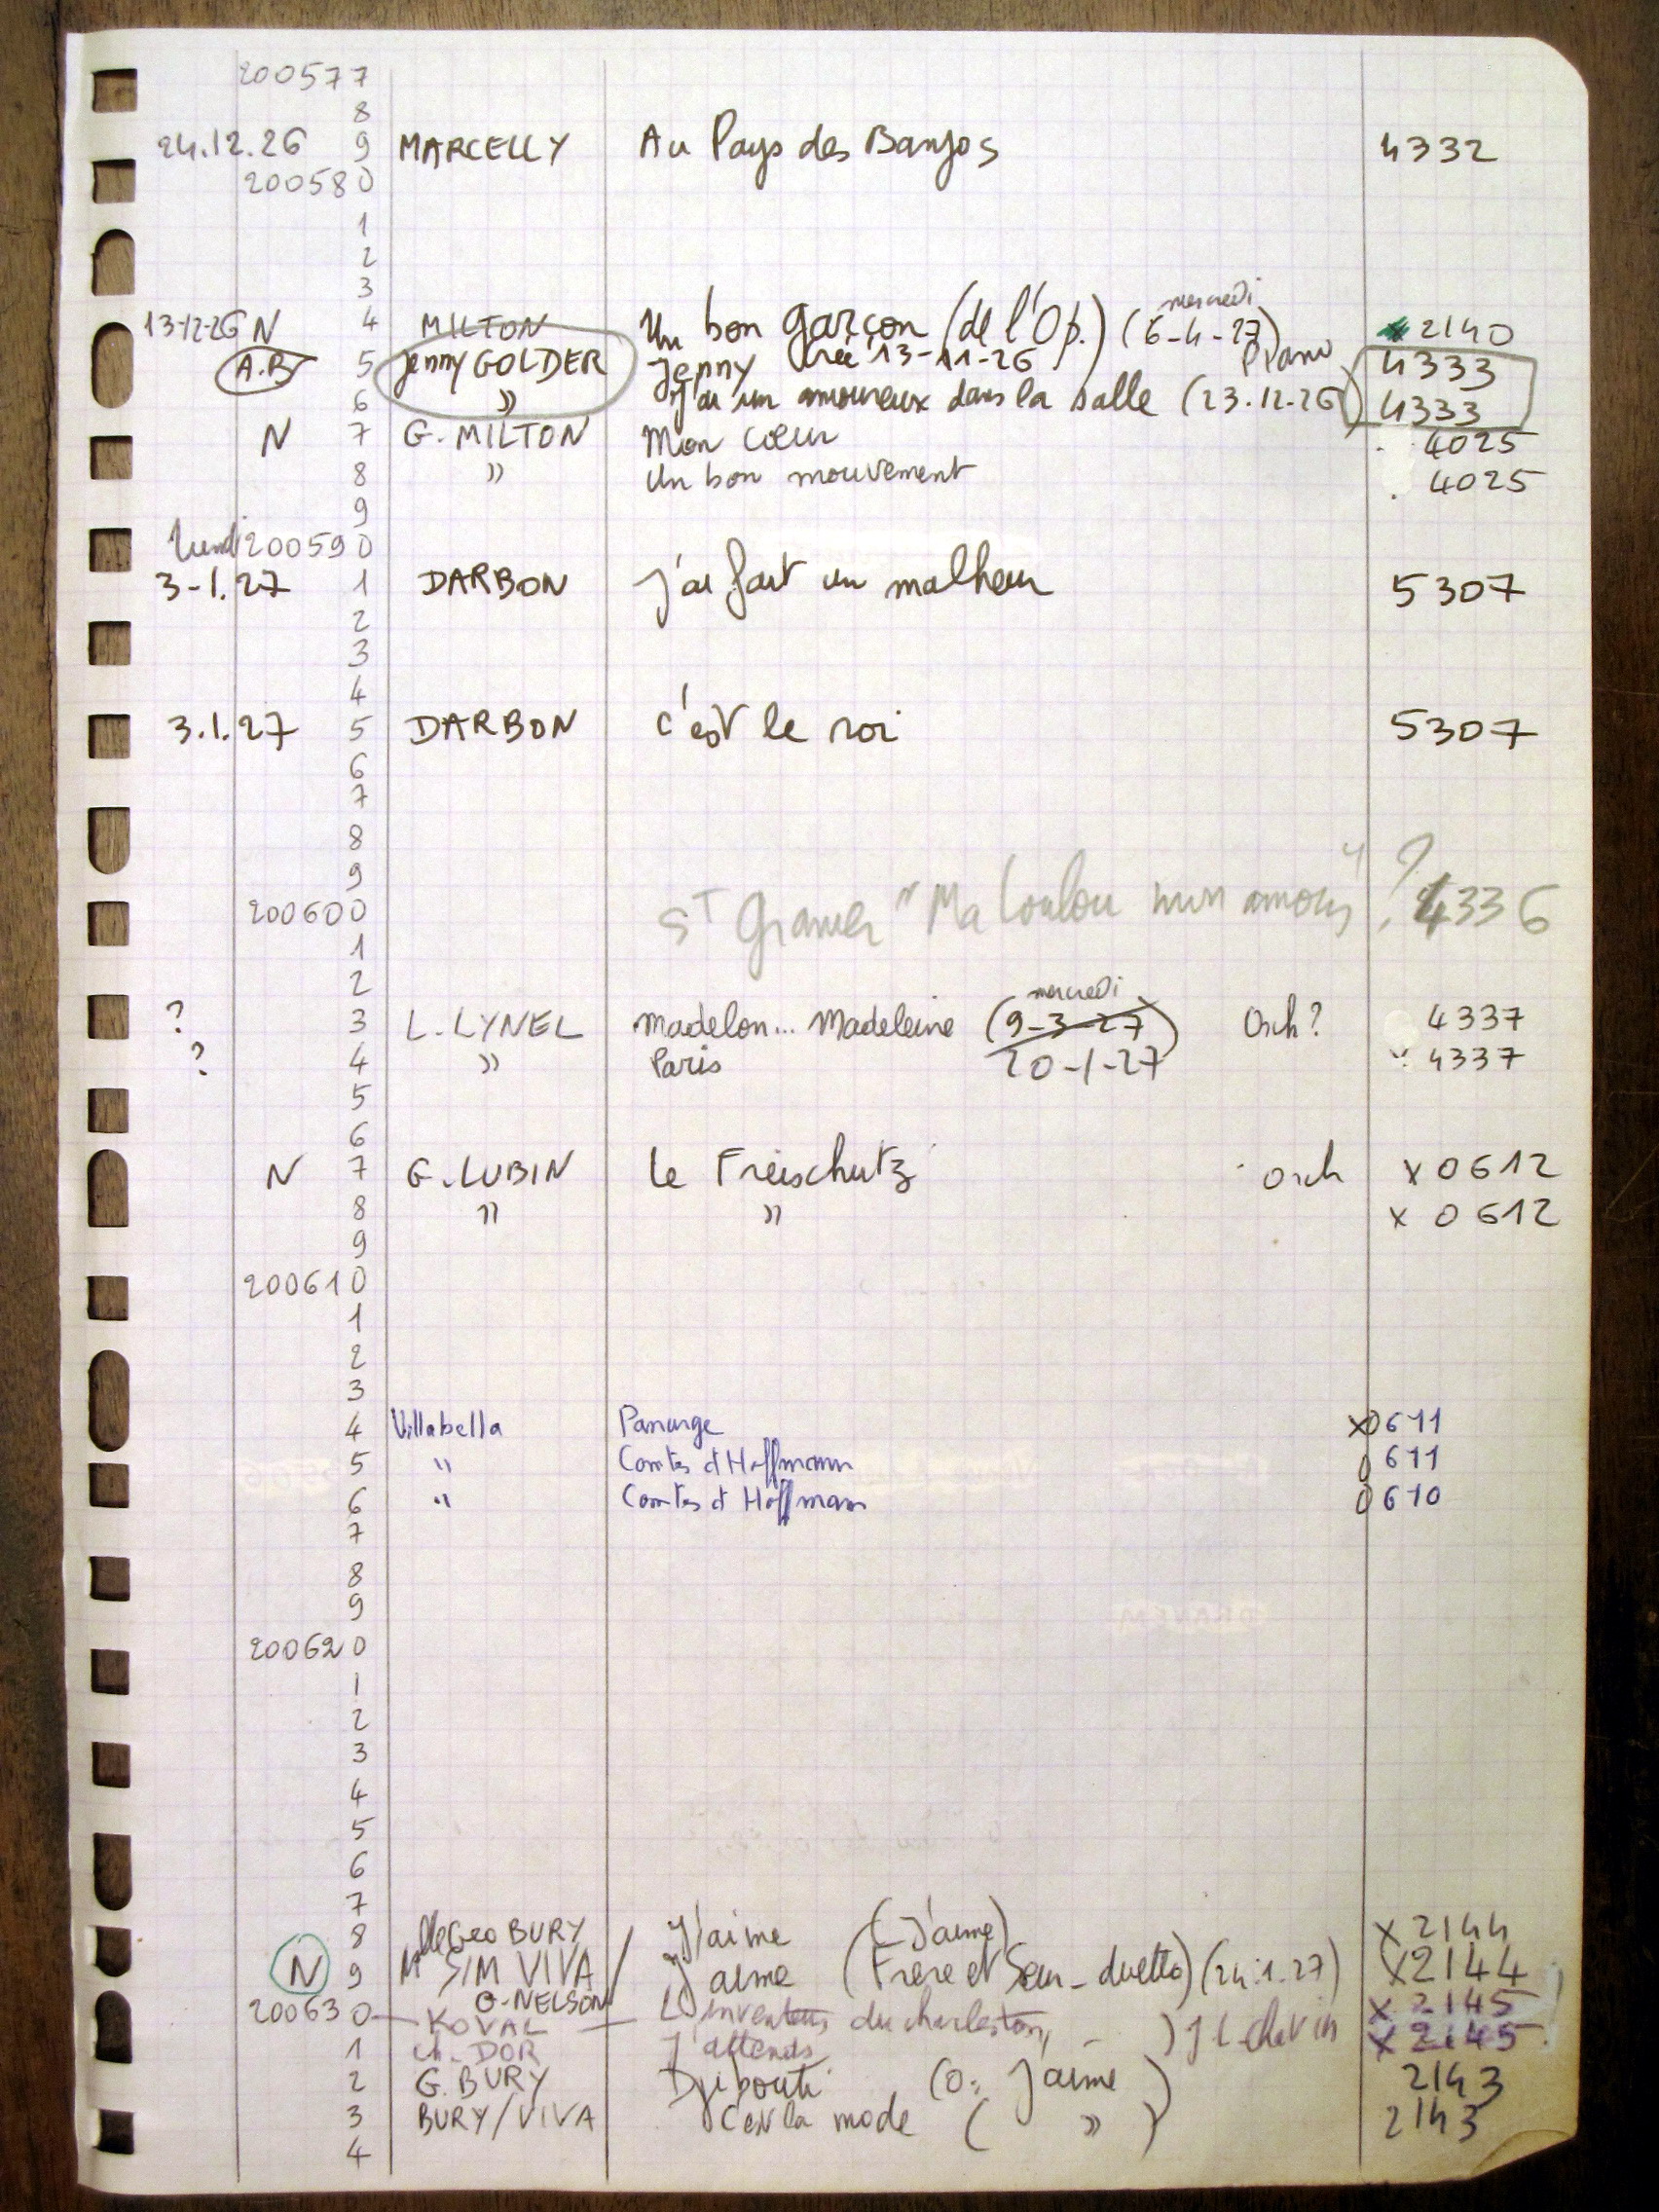 200577
8
24.12.26 9 MARCELLY Au Pays des Banjos 4332
200580
1
2
3
mercredi
13-12-26 N 4 MILTON Un bon garçon (de l'Op.) (6-4-27) 2140
A.B 5 Jenny GOLDER Jenny créé 13-11-26 Piano 4333
6 » J'ai un amoureux dans la salle (23.12.26) 4333
N 7 G. MILTON Mon coeur 4025
8 » Un bon mouvement 4025
9
lundi 200590
3-1.27 1 DARBON J'ai fait un malheur 5307
2
3
4
3.1.27 5 DARBON c'est le roi 5307
6
7
8
9
200600 St Granier "Ma Loulou mon amour" ? 4336
1
2
mercredi
? 3 L. LYNEL Madelon... Madeleine (9-3-27) Orch? 4337
? 4 » Paris 20-1-27 4337
5
6
N 7 G. LUBIN Le Freischutz orch x 0612
8 » » x 0612
9
200610
1
2
3
4 Villabella Panurge x0611
5 " Contes d'Hoffmann 0611
6 " Contes d'Hoffmann 0610
7
8
9
200620
1
2
3
4
5
6
7
8 Mlle Geo BURY J'aime (J'aime) x 2144
N 9 Mlle SIM VIVA / O. NELSON J'aime (Frère et Soeur - duetto) (24.1.27) x2144
200630 KOVAL L'inventeur du charleston x 2145
1 Ch. DOR J'attends x 2145
2 G. BURY Djibouti (O: J'aime) 2143
3 BURY/VIVA C'est la mode ( » ) 2143
4